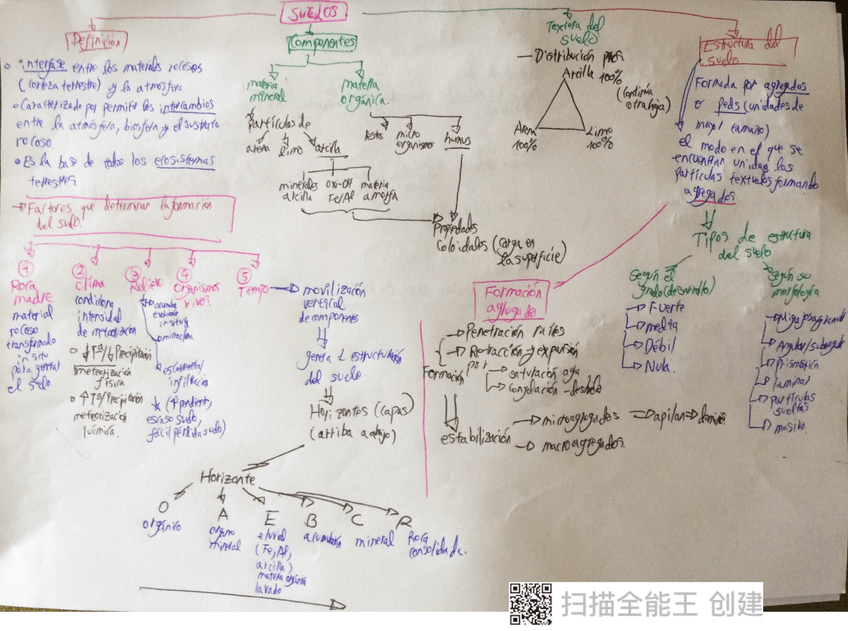 SUELOS
Definición
• interfase entre los materiales rocosos
(corteza terrestre) y la atmósfera
• Caracterizado por permitir los intercambios
entre la atmósfera, biosfera y el sustrato
rocoso.
• Es la base de todos los ecosistemas
terrestres
→ Factores que determinan la formación
del suelo.
① Roca
madre
material
rocoso
in situ
para generar
el suelo
② clima
condiciona
intensidad
de meteorización
• ↓Tª/↓Precipitación
meteorización
física
• ↑Tª/↑Precipitación
meteorización
química.
③ Relieve
infiltración
(↑pendiente,
escaso suelo,
fácil pérdida suelo)
④ organismos
vivos
⑤ Tiempo
movilización
vertical
de componentes
genera
del suelo.
Horizontes (capas)
(arriba abajo)
Horizonte
O
orgánico
A
organo
mineral
E
eluvial
(Fe, Al,
arcilla)
materia orgánica
lavado
B
acumulación
C
mineral
R
Roca
consolidada.
Componentes
materia
mineral
Partículas de
arena
limo
arcilla
minerales
arcilla
Oxi-OH
Fe/Al
materia
amorfa
materia
orgánica.
restos
micro
organismos
humus
Propiedades
Coloidales (carga en
la superficie)
Textura del
suelo
— Distribución
Arcilla 100%
(continúa
otra hoja)
Arena
100%
Limo
100%
Estructura del
suelo
Formada por agregados
o peds (unidades de
mayor tamaño)
el modo en el que se
encuentran unidas las
partículas texturales formando
agregados
Tipos de estructura
del suelo
Según el
grado (desarrollo)
Fuerte
Débil
Nula.
Según su
morfología
Prismática
laminar
partículas
sueltas
masiva.
Formación
agregado
Formación
por
Penetración raíces
Retracción → expansión
saturación agua
Congelación - deshielo
estabilización
microagregados
macroagregados.
扫描全能王 创建